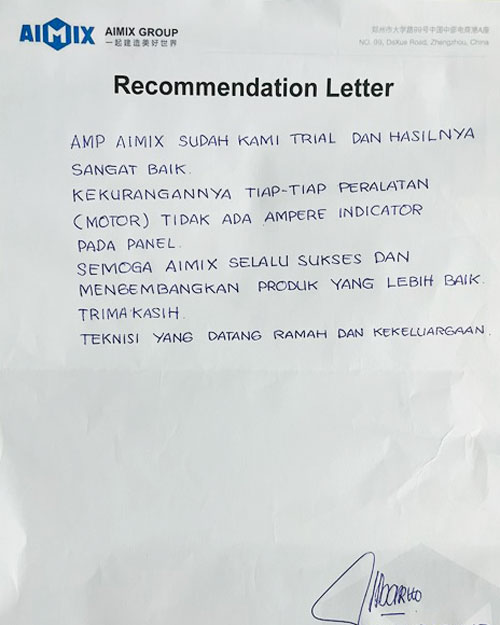 AIMIX
AIMIX GROUP
一起建造美好世界
NO. 99, DaXue Road, Zhengzhou, China
Recommendation Letter
AMP AIMIX SUDAH KAMI TRIAL DAN HASILNYA
SANGAT BAIK.
KEKURANGANNYA TIAP-TIAP PERALATAN
(MOTOR) TIDAK ADA AMPERE INDICATOR
PADA PANEL.
SEMOGA AIMIX SELALU SUKSES DAN
MENGEMBANGKAN PRODUK YANG LEBIH BAIK.
TRIMA KASIH.
TEKNISI YANG DATANG RAMAH DAN KEKELUARGAAN.